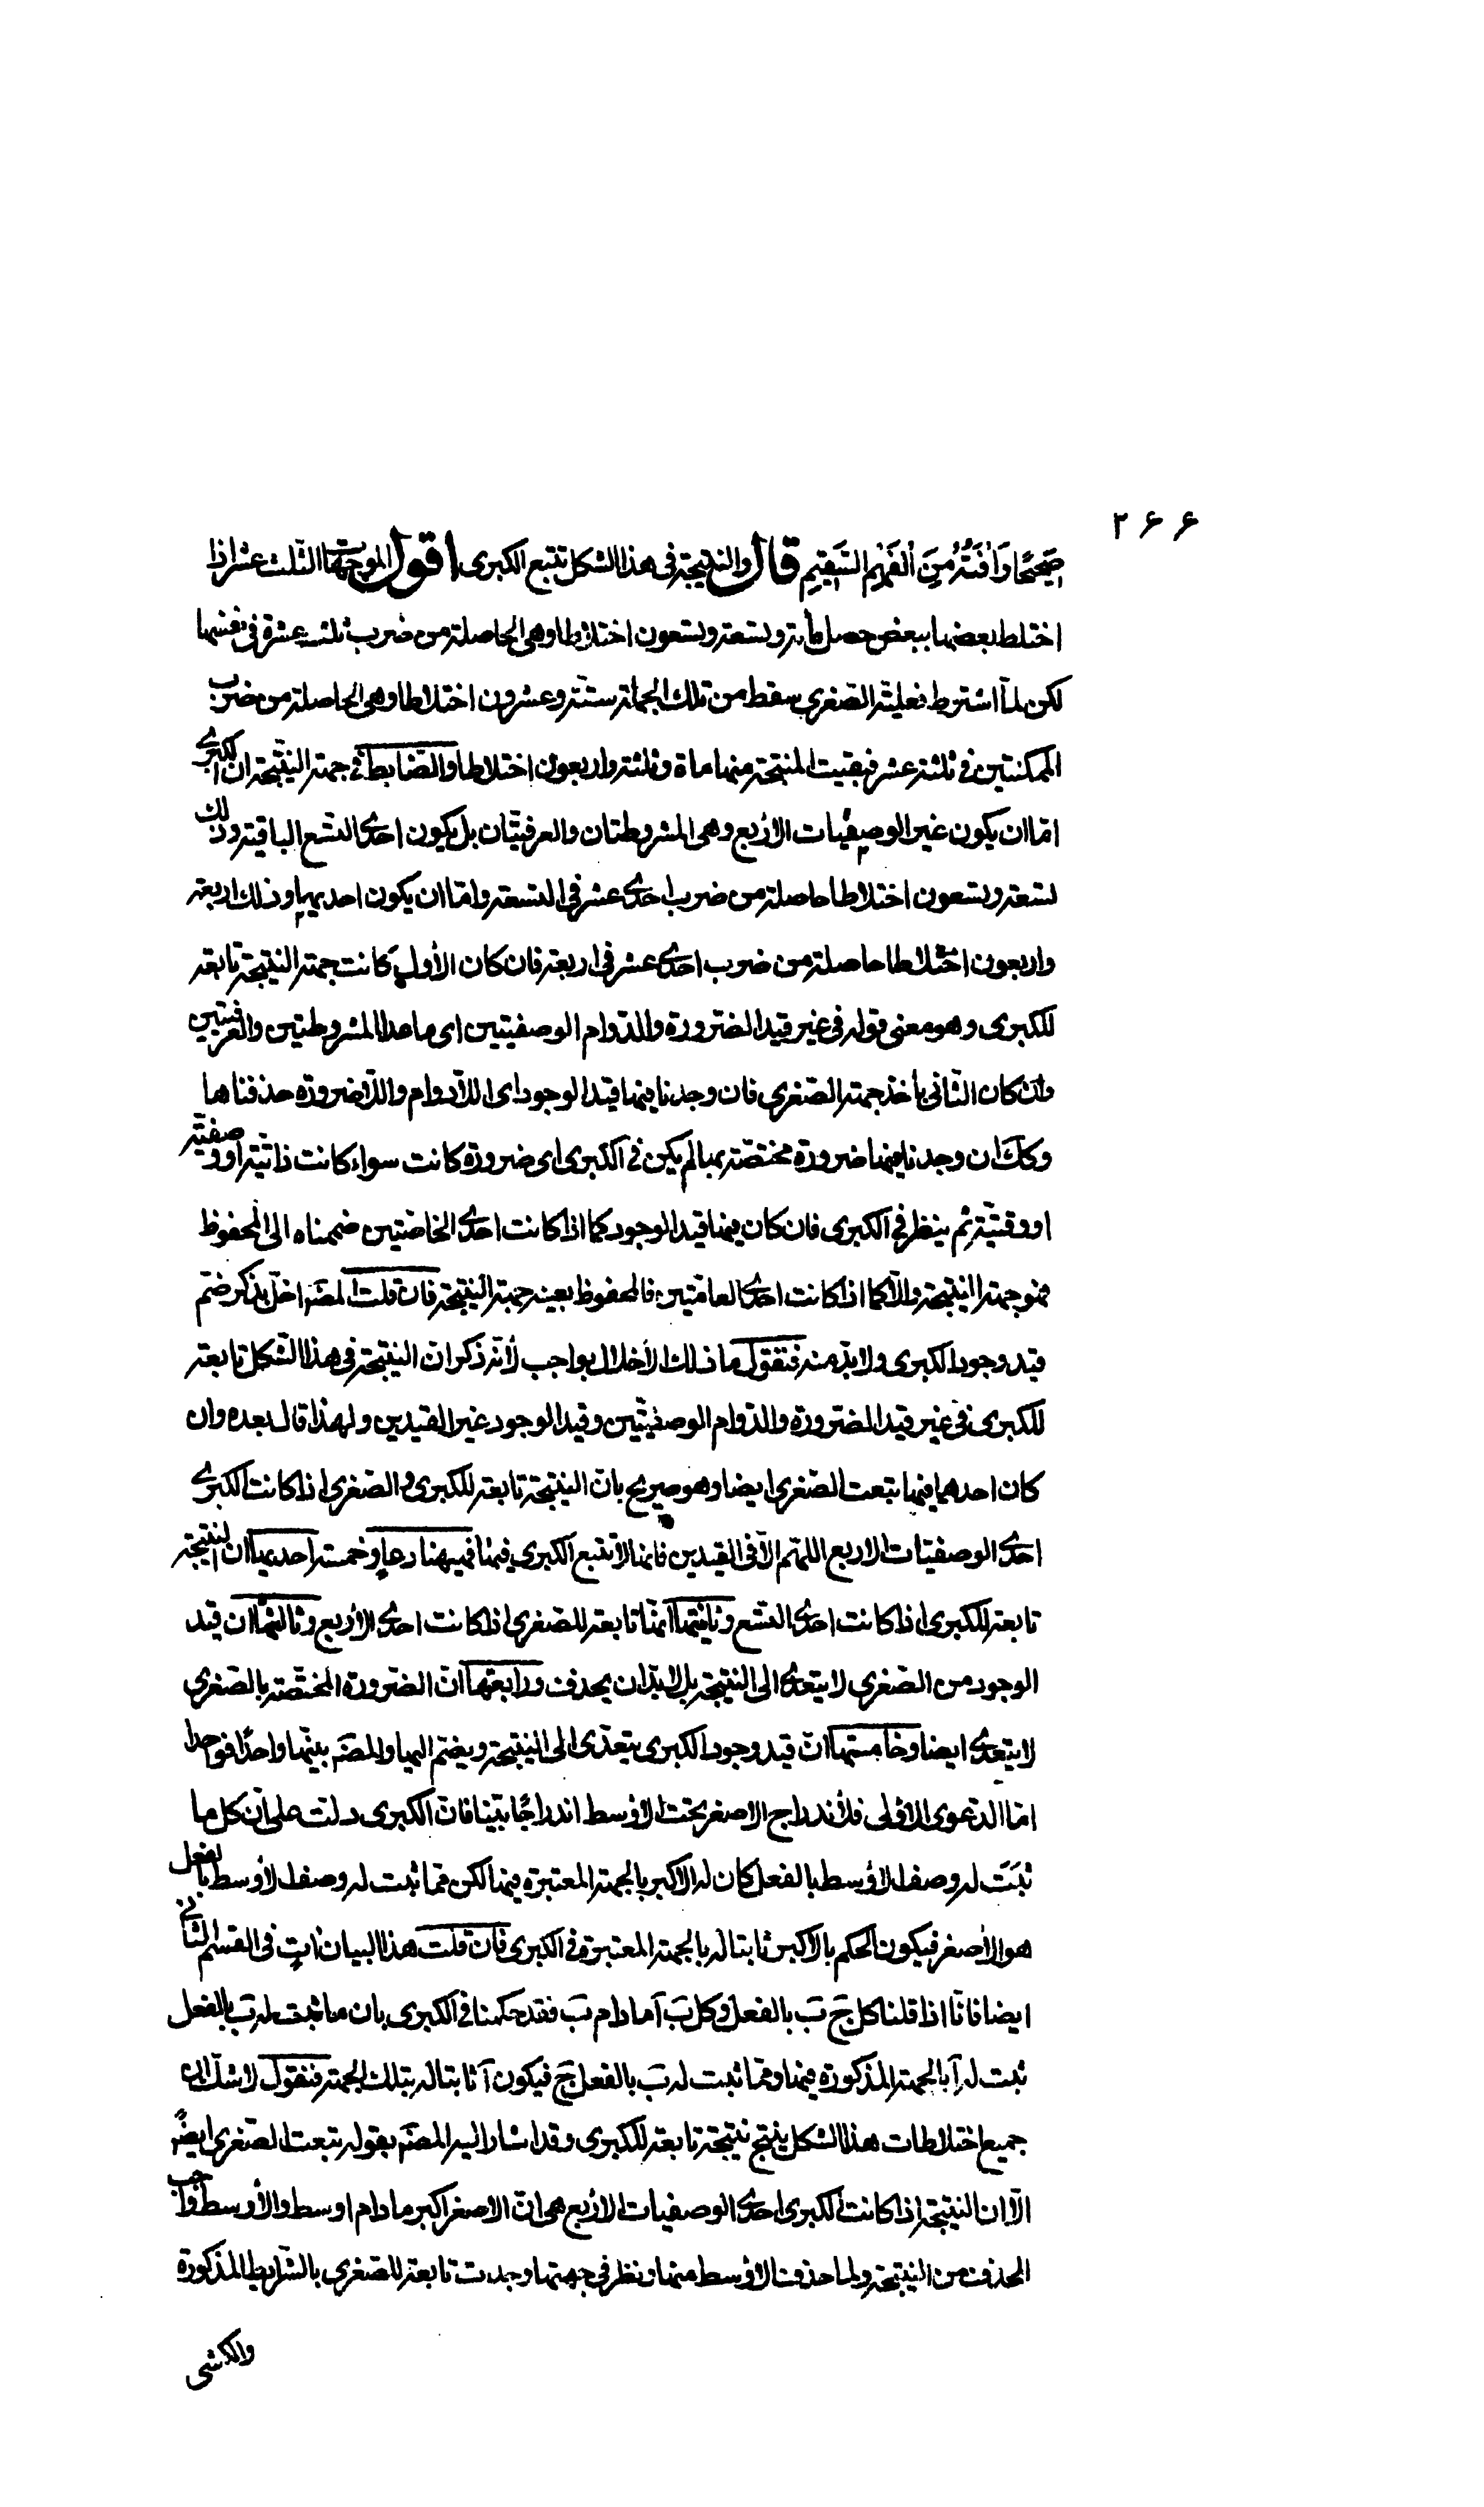 ۲۶۶
صَحيحًا وَافَتُهُ مِنَ الْفَهْمِ السَّقِيمِ قال والنتيجة فى هذا الشكل تتبع الكبرى اقول الموجهات الثلث عشر اذا
اختلط بعضها ببعض حصل مأة وتسعة وستون اختلاطا وهى الحاصلة من ضرب ثلثة عشرة فى نفسها
لكن لما اشترط فعلية الصغرى سقط من تلك الجملة ستة وعشرون اختلاطا وهى الحاصلة من ضرب
الممكنتين فى ثلثة عشر فبقيت المنتجة منها مأة وثلثة واربعون اختلاطا والضابط فى جهة النتيجة ان الكبرى
امّا ان يكون غير الوصفيّات الأربع وهى المشروطتان والعرفيّتان بل يكون احدى التسع الباقية وذلك
تسعة وتسعون اختلاطا حاصلة من ضرب احدى عشر فى التسعة وامّا ان يكون احديهما وذلك اربعة
واربعون اختلاطا حاصلة من ضرب احدى عشر فى اربعة فان كان الأول كانت جهة النتيجة تابعة
للكبرى وهو معنى قوله فى غير قيد الضرورة والدّوام الوصفيتين اى ما عدا المشروطتين والعرفيتين
وان كان الثّانى يأخذ جهة الصّغرى فان وجدنا فيها قيد الوجود اى اللّادوام واللّاضرورة حذفناها
وكك ان وجدنا فيها ضرورة مختصّة بها لم يكن فى الكبرى اى ضرورة كانت سواء كانت ذاتيّة او وصفيّة
او وقتيّة ثم ينظر فى الكبرى فان كان فيها قيد الوجود كما اذا كانت احدى الخاصّتين ضممناه الى المحفوظ
فهو جهة النتيجة والّا كما اذا كانت احدى العامّتين فالمحفوظ بعينه جهة النتيجة فان قلت المصَ اخلّ بذكر ضمّ
قيد وجود الكبرى ولا بدّ منه فنقول ما ذلك الأخلال بواجب لأنّه ذكر انّ النتيجة فى هذا الشّكل تابعة
للكبرى فى غير قيد الضرورة والدّوام الوصفيّتين وقيد الوجود غير القيدين ولهذا قال بعده وان
كان احدهما فيها تبعت الصّغرى ايضا وهو صريح بانّ النتيجة تابعة للكبرى والصّغرى اذا كانت الكبرى
احدى الوصفيّات الاربع اللهمّ الّا فى القيدين فانها لا تتبع الكبرى فيها فههنا دعاو خمسة احديها ان النتيجة
تابعة للكبرى اذا كانت احدى التسع وثانيتها انّها تابعة للصغرى اذا كانت احدى الأربع وثالثها ان قيد
الوجود من الصّغرى لا يتعدّى الى النتيجة بل لا بدّ ان يحذف ورابعتها انّ الضّرورة المختصّة بالصّغرى
لا يتعدّى ايضا وخامستها انّ قيد وجود الكبرى يتعدّى الى النتيجة ويضمّ اليها والمصَ بينها واحدًا فواحدا
امّا الدّعوى الاولى فلأندراج الاصغر تحت الاوسط اندراجًا بيّنا فانّ الكبرى دلّت على انّ كل ما
ثبَتَ له وصف الأوسط بالفعل كان له الاكبر بالجهة المعتبرة فيها لكن ممّا ثبت له وصف الأوسط بالفعل
هو الأصغر فيكون الحكم بالأكبر ثابتا له بالجهة المعتبرة فى الكبرى فان قلت هذا البيان اتٍ فى القسم الثانى
ايضا فانّا اذا قلنا كل جَ بَ بالفعل وكل بَ آ ما دام بَ فقد حكمنا فى الكبرى بان ما ثبت له بَ بالفعل
ثبت له آ بالجهة المذكورة فيها وممّا ثبت له بَ بالفعل جَ فيكون آ ثابتا له بتلك الجهة فنقول لا شكّ ان
جميع اختلاطات هذا الشكل ينتج نتيجة تابعة للكبرى وقد اشار اليه المصَ بقوله تبعت الصّغرى ايضًا
الّا ان النتيجة اذا كانت الكبرى احدى الوصفيات الأربع هى انّ الاصغر اكبر ما دام اوسط والأوسط واجب
الحذف من النتيجة ولما حذف الاوسط منها ونظر فى جهتها وجدت تابعة للصّغرى بالشّرايط المذكورة
والكشى